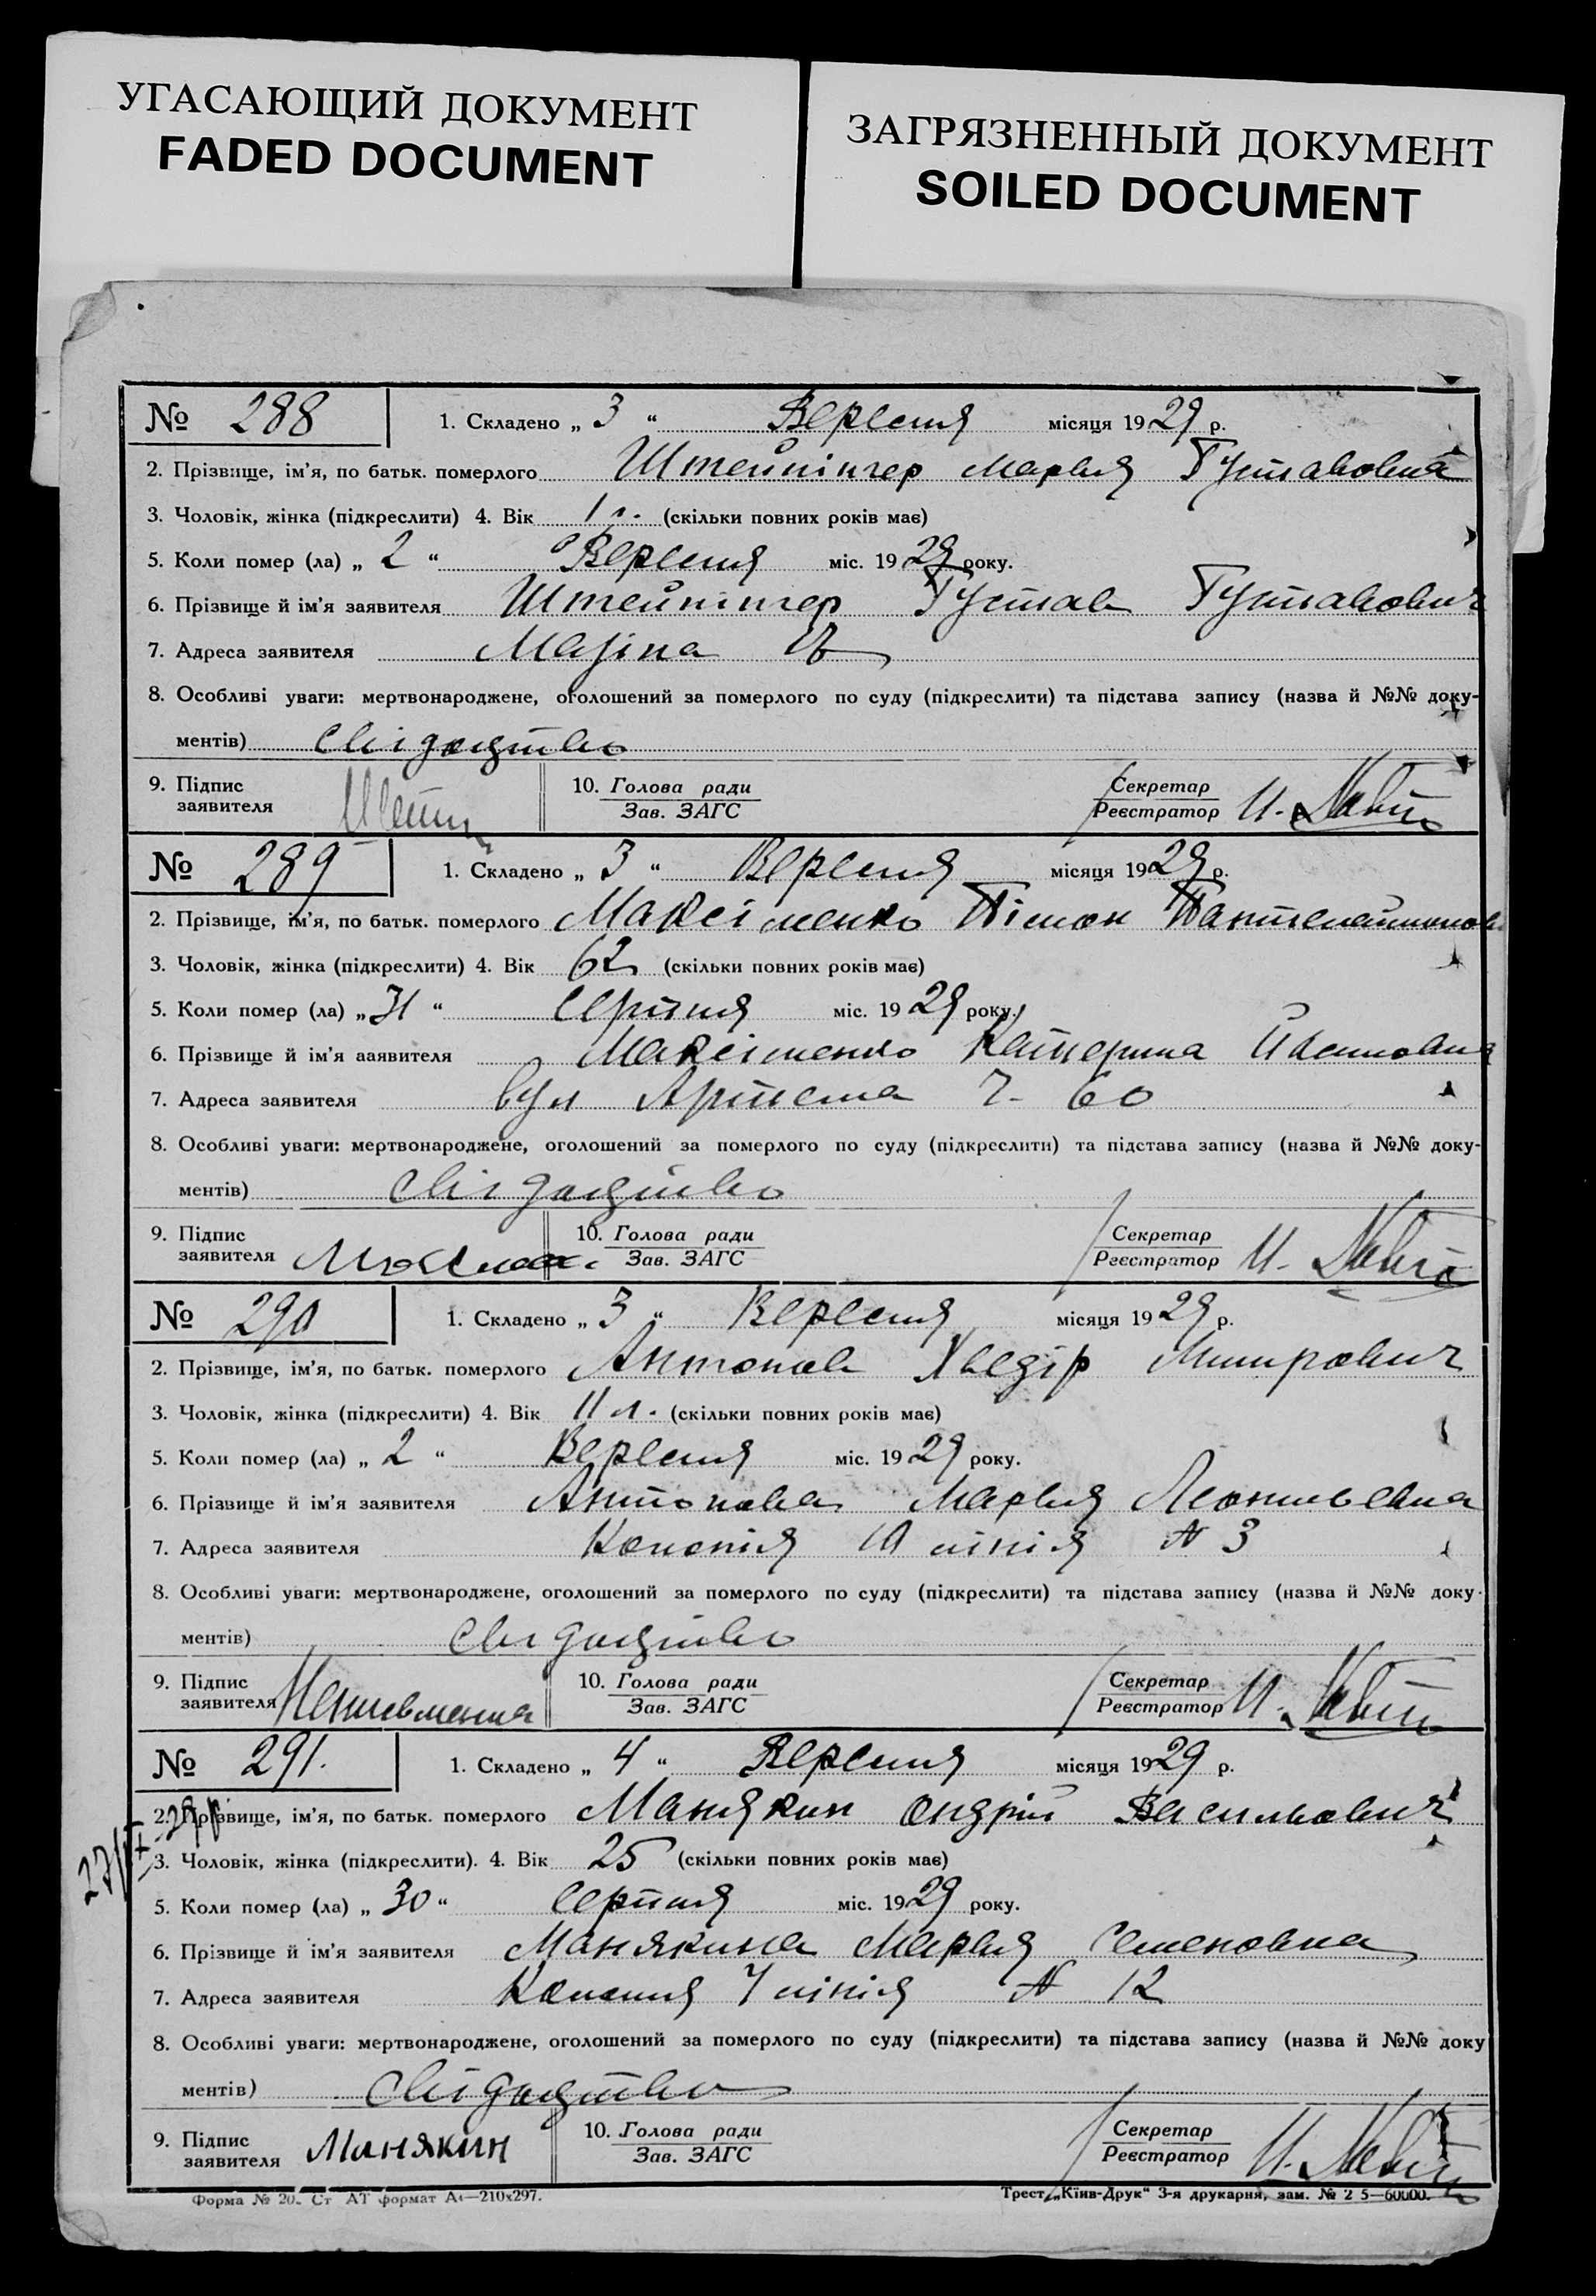 УГАСАЮЩИЙ ДОКУМЕНТ
FADED DOCUMENT
ЗАГРЯЗНЕННЫЙ ДОКУМЕНТ
SOILED DOCUMENT
№ 288 1. Складено „ 3 “ Вересня місяця 1929 р.
2. Прізвище, ім’я, по батьк. померлого Штейнінгер Марыя Густавовна
3. Чоловік, жінка (підкреслити) 4. Вік 1 р. (скільки повних років має)
5. Коли помер (ла) „ 2 “ Вересня міс. 1929 року.
6. Прізвище й ім’я заявителя Штейнінгер Густав Густавович
7. Адреса заявителя
8. Особливі уваги: мертвонароджене, оголошений за померлого по суду (підкреслити) та підстава запису (назва й №№ доку-
ментів) свідоцтво
9. Підпис заявителя 10. Голова ради Зав. ЗАГС Секретар Реєстратор
№ 289 1. Складено „ 3 “ Вересня місяця 1929 р.
2. Прізвище, ім’я, по батьк. померлого Максіменко Пімон Пантелеймонов
3. Чоловік, жінка (підкреслити) 4. Вік 62 (скільки повних років має)
5. Коли помер (ла) „ 31 “ Серпня міс. 1929 року.
6. Прізвище й ім’я ааявителя Максіменко Катерина
7. Адреса заявителя вул Артема 60
8. Особливі уваги: мертвонароджене, оголошений за померлого по суду (підкреслити) та підстава запису (назва й №№ доку-
ментів) свідоцтво
9. Підпис заявителя 10. Голова ради Зав. ЗАГС Секретар Реєстратор
№ 290 1. Складено „ 3 “ Вересня місяця 1929 р.
2. Прізвище, ім’я, по батьк. померлого Антонов Хведір
3. Чоловік, жінка (підкреслити) 4. Вік 11 (скільки повних років має)
5. Коли помер (ла) „ 2 “ Вересня міс. 1929 року.
6. Прізвище й ім’я заявителя Антонова Марыя
7. Адреса заявителя Колонія лінія № 3
8. Особливі уваги: мертвонароджене, оголошений за померлого по суду (підкреслити) та підстава запису (назва й №№ доку-
ментів) свідоцтво
9. Підпис заявителя Неписьменна 10. Голова ради Зав. ЗАГС Секретар Реєстратор
№ 291. 1. Складено „ 4 “ Вересня місяця 1929 р.
2. Прізвище, ім’я, по батьк. померлого Манякин Андрій Васильович
3. Чоловік, жінка (підкреслити). 4. Вік 25 (скільки повних років має)
5. Коли помер (ла) „ 30 “ Серпня міс. 1929 року.
6. Прізвище й ім’я заявителя Манякина Марыя Семеновна
7. Адреса заявителя Колония 7 лінія № 12
8. Особливі уваги: мертвонароджене, оголошений за померлого по суду (підкреслити) та підстава запису (назва й №№ доку
ментів) свідоцтво
9. Підпис заявителя Манякин 10. Голова ради Зав. ЗАГС Секретар Реєстратор
Форма № 20. Ст АТ формат А4—210х297. Трест „Київ-Друк“ 3-я друкарня, зам. № 2 5—60000.